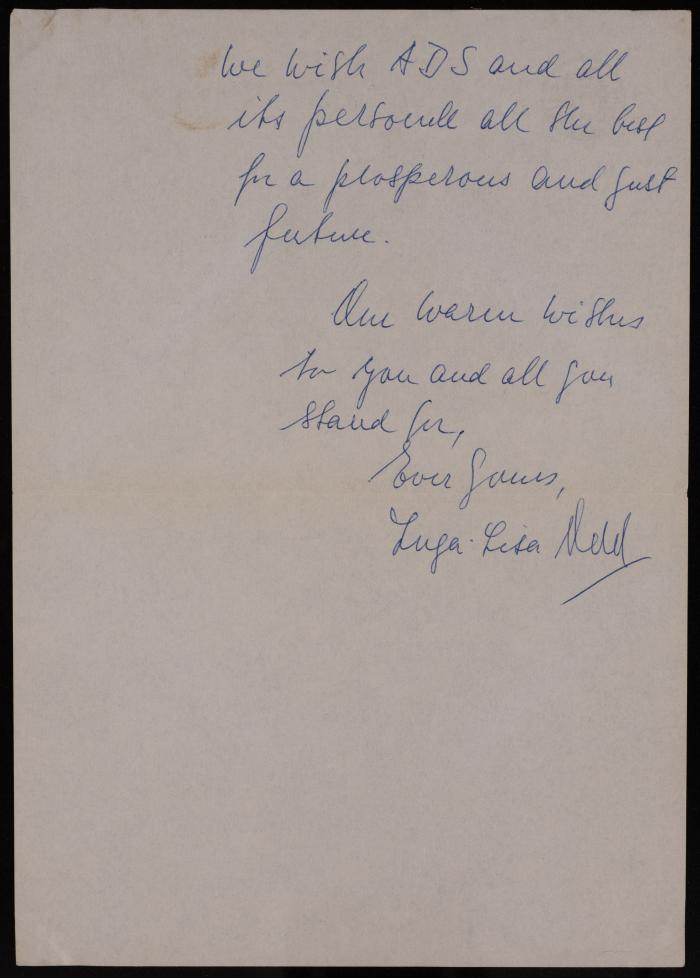 We wish ADS and all
its personell all the best
for a prosperous and just
future.
Our warm wishes
to you and all you
stand for,
Ever yours,
Inga-Lisa